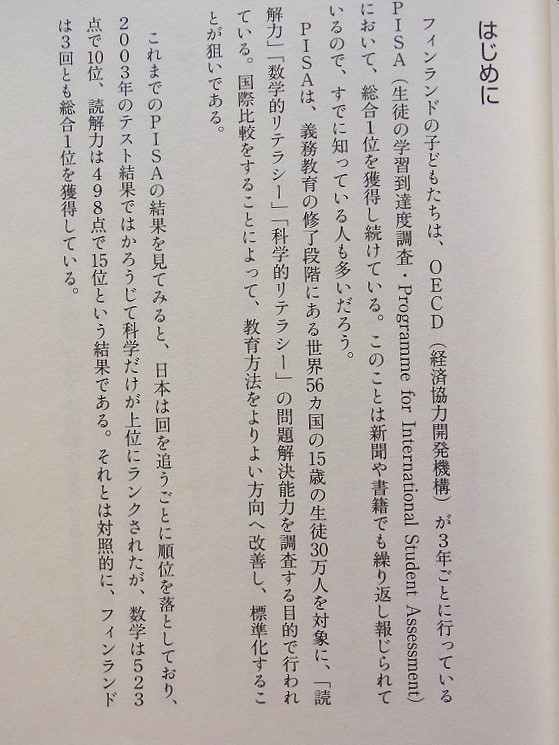 はじめに
フィンランドの子どもたちは、OECD（経済協力開発機構）が3年ごとに行っている
PISA（生徒の学習到達度調査・Programme for International Student Assessment）
において、総合1位を獲得し続けている。このことは新聞や書籍でも繰り返し報じられて
いるので、すでに知っている人も多いだろう。
PISAは、義務教育の修了段階にある世界56カ国の15歳の生徒30万人を対象に、「読
解力」「数学的リテラシー」「科学的リテラシー」の問題解決能力を調査する目的で行われ
ている。国際比較をすることによって、教育方法をよりよい方向へ改善し、標準化するこ
とが狙いである。
これまでのPISAの結果を見てみると、日本は回を追うごとに順位を落としており、
2003年のテスト結果ではかろうじて科学だけが上位にランクされたが、数学は523
点で10位、読解力は498点で15位という結果である。それとは対照的に、フィンランド
は3回とも総合1位を獲得している。